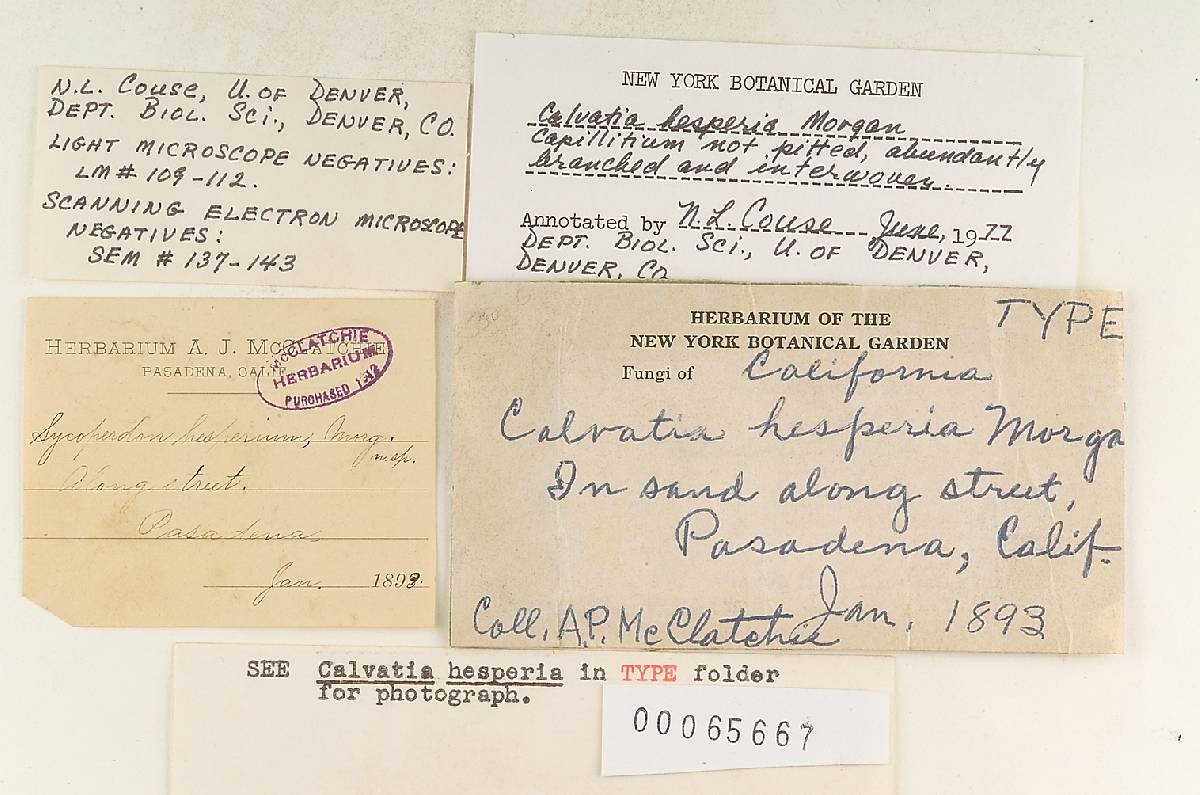 N.L. Couse, U. OF DENVER,
DEPT. BIOL. Sci., DENVER, CO.
LIGHT MICROSCOPE NEGATIVES:
LM # 109-112.
SCANNING ELECTRON MICROSCOPE
NEGATIVES:
SEM # 137-143
NEW YORK BOTANICAL GARDEN
Calvatia hesperia Morgan
Capillitium not pitted, abundantly
branched and interwoven.
Annotated by N.L. Couse June, 1977
DEPT. BIOL. Sci., U. OF DENVER,
DENVER, CO
HERBARIUM A. J. McCLATCHIE
PASADENA, CALIF.
McCLATCHIE
HERBARIUM
PURCHASED
Lycoperdon hesperium, Morg.
Along street.
Pasadena
Jan. 1893.
TYPE
HERBARIUM OF THE
NEW YORK BOTANICAL GARDEN
Fungi of California
Calvatia hesperia Morga
In sand along street,
Pasadena, Calif.
Jan. 1893
Coll. A.P. McClatchie
SEE Calvatia hesperia in TYPE folder
for photograph.
00065667